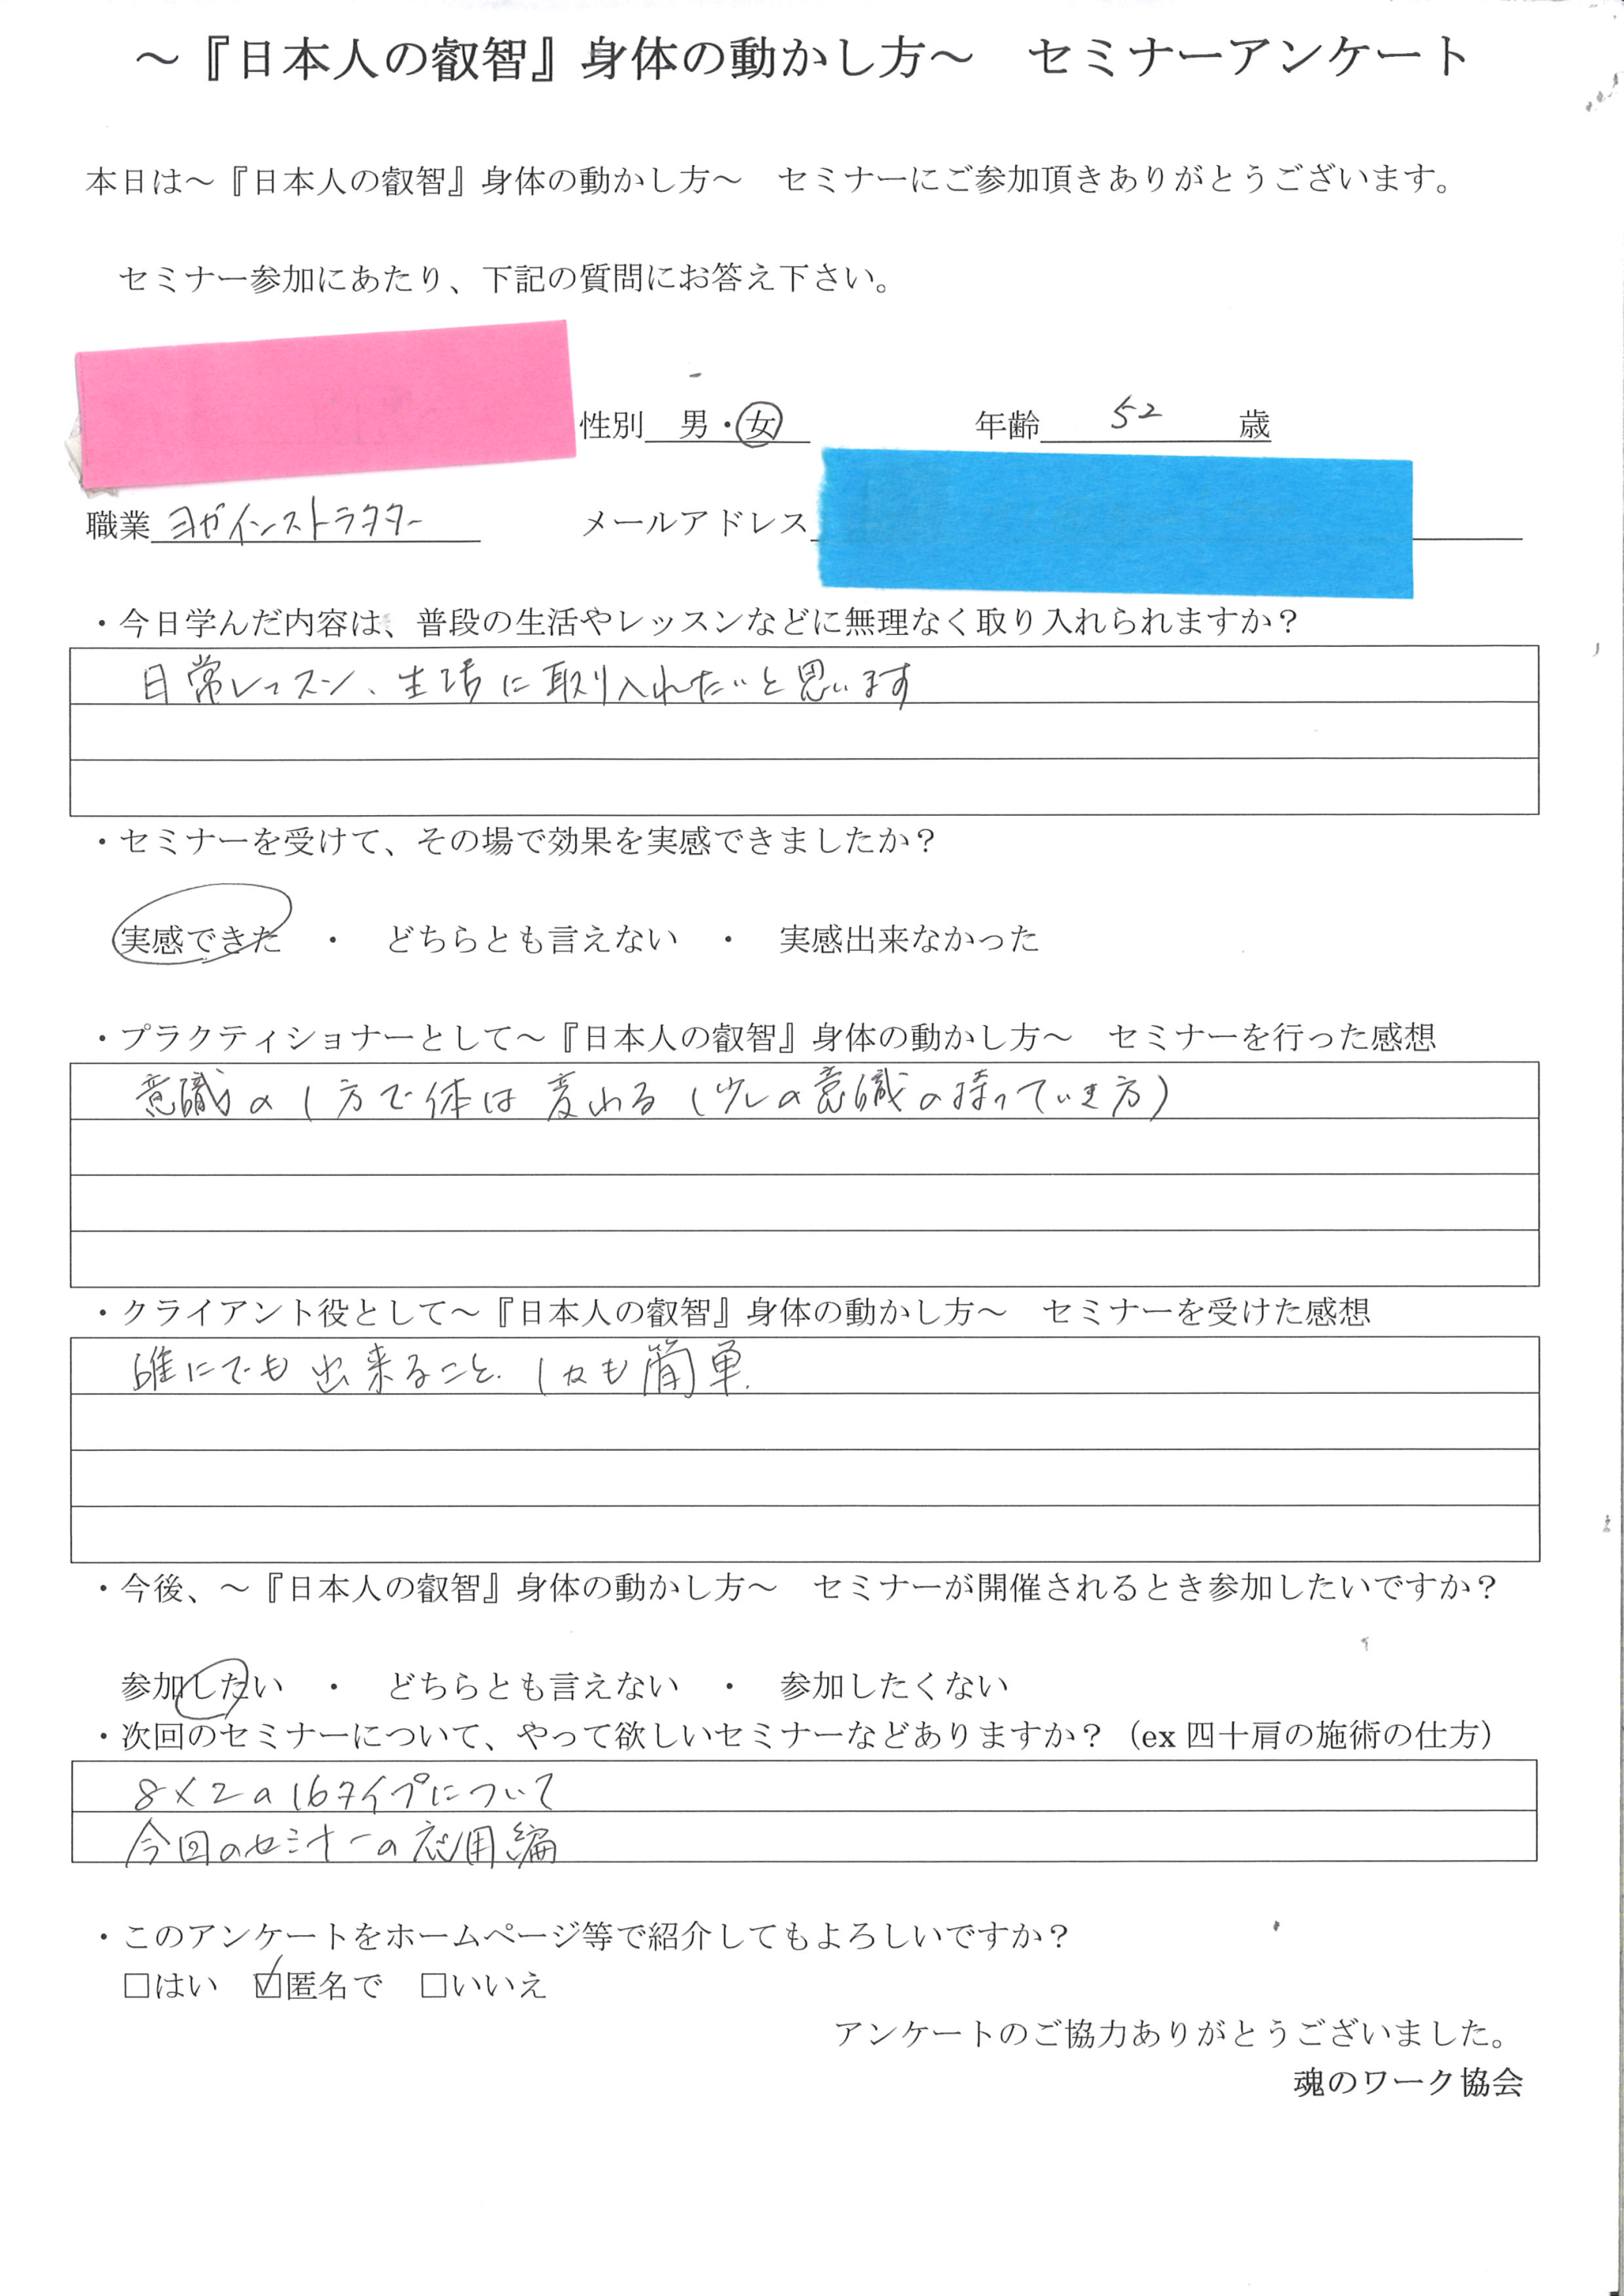 ～『日本人の叡智』身体の動かし方～　セミナーアンケート
本日は～『日本人の叡智』身体の動かし方～　セミナーにご参加頂きありがとうございます。
セミナー参加にあたり、下記の質問にお答え下さい。
性別　男・女　年齢　52　歳
職業 ヨガインストラクター　メールアドレス
・今日学んだ内容は、普段の生活やレッスンなどに無理なく取り入れられますか？
日常レッスン、生活に取り入れたいと思います
・セミナーを受けて、その場で効果を実感できましたか？
実感できた　・　どちらとも言えない　・　実感出来なかった
・プラクティショナーとして～『日本人の叡智』身体の動かし方～　セミナーを行った感想
意識のし方で体は変わる（少しの意識の持っていき方）
・クライアント役として～『日本人の叡智』身体の動かし方～　セミナーを受けた感想
誰にでも出来ること、しかも簡単.
・今後、～『日本人の叡智』身体の動かし方～　セミナーが開催されるとき参加したいですか？
参加したい　・　どちらとも言えない　・　参加したくない
・次回のセミナーについて、やって欲しいセミナーなどありますか？（ex 四十肩の施術の仕方）
8×2の16タイプについて
今回のセミナーの応用編
・このアンケートをホームページ等で紹介してもよろしいですか？
□はい　☑匿名で　□いいえ
アンケートのご協力ありがとうございました。
魂のワーク協会